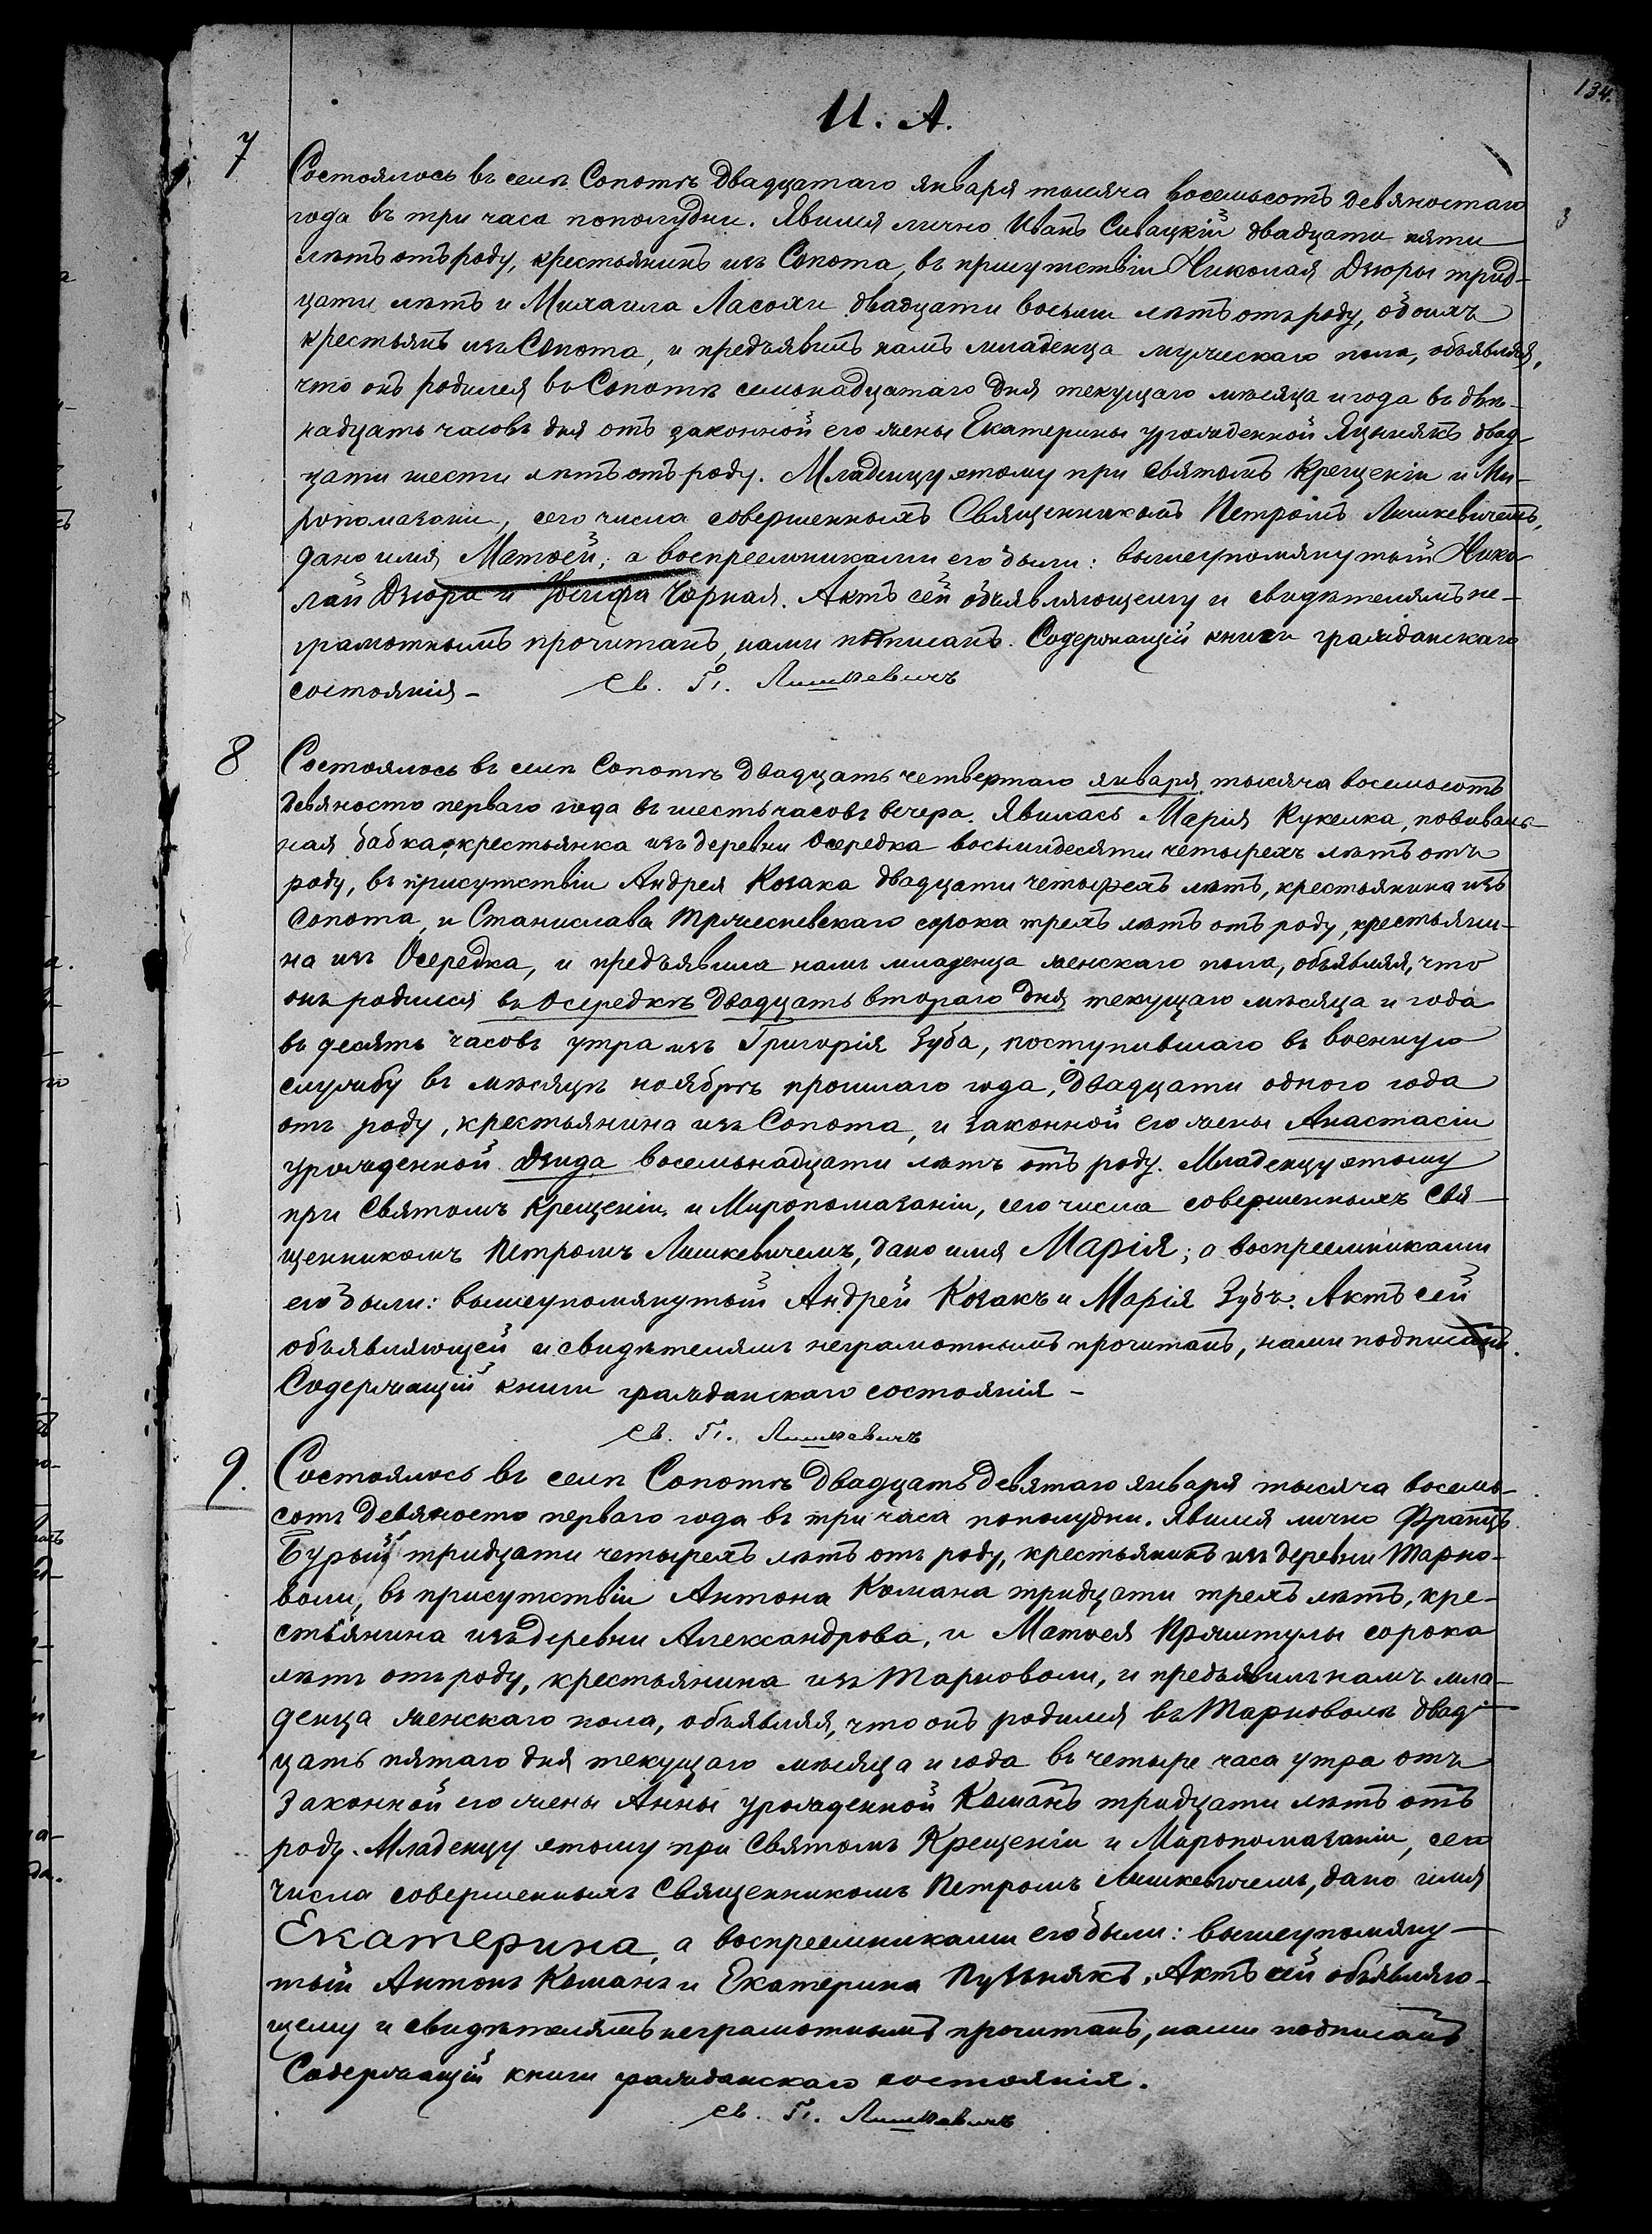 134.
И. А.
7
Состоялось въ селѣ Сопотѣ двадцатаго января тысяча восемьсотъ девяностаго
года въ три часа пополудни. Явился лично Иванъ Сивацкій двадцати пяти
лѣтъ отъ роду, крестьянинъ изъ Сопота, въ присутствіи Николая Дзюры трид-
цати лѣтъ и Михаила Ласохи двадцати восьми лѣтъ отъ роду, обоихъ
крестьянъ изъ Сопота, и предъявилъ намъ младенца мужескаго пола, объявляя,
что онъ родился въ Сопотѣ семьнадцатаго дня текущаго мѣсяца и года въ двѣ-
надцать часовъ дня отъ законной его жены Екатерины урожденной Яцынякъ двад-
цати шести лѣтъ отъ роду. Младенцу этому при Святомъ Крещеніи и Ми-
ропомазани, сего числа совершенныхъ Священникомъ Петромъ Лишкевичемъ,
дано имя Матѳей; а воспреемниками его были: вышеупомянутый Нико-
лай Дзюра и Юзефа Чорная. Актъ сей объявляющему и свидѣтелямъ не-
грамотнымъ прочитанъ, нами подписанъ. Содержащій книги гражданскаго
состоянія – Св. П. Лишкевичъ
8
Состоялось въ селѣ Сопотѣ двадцать четвертаго января тысяча восемьсотъ
девяносто перваго года въ шесть часовъ вечера. Явилась Марія Кукелка, повиваль-
ная бабка, крестьянка изъ деревни Осередка восьмидесяти четырехъ лѣтъ отъ
роду, въ присутствіи Андрея Козака двадцати четырехъ лѣтъ, крестьянина изъ
Сопота, и Станислава Тржесневскаго сорока трехъ лѣтъ отъ роду, крестьяни-
на изъ Осередка, и предъявила намъ младенца женскаго пола, объявляя, что
онъ родился въ Осередкѣ двадцать втораго дня текущаго мѣсяца и года
въ десять часовъ утра изъ Григорія Зуба, поступившаго въ военную
службу въ мѣсяцѣ ноябрѣ прошлаго года, двадцати одного года
отъ роду, крестьянина изъ Сопота, и законной его жены Анастасіи
урожденной Дзида восемьнадцати лѣтъ отъ роду. Младенцу этому
при Святомъ Крещеніи и Миропомазаніи, сего числа совершенныхъ Свя-
щенникомъ Петромъ Лишкевичемъ, дано имя Марія; а воспреемниками
его были: вышеупомянутый Андрей Козакъ и Марія Зубъ. Актъ сей
объявляющей и свидѣтелямъ неграмотнымъ прочитанъ, нами подписанъ.
Содержащій книги гражданскаго состоянія –
Св. П. Лишкевичъ
9.
Состоялось въ селѣ Сопотѣ двадцать девятаго января тысяча восемь-
сотъ девяносто перваго года въ три часа пополудни. Явился лично Францъ
Бурый тридцати четырехъ лѣтъ отъ роду, крестьянинъ изъ деревни Тарно-
воли, въ присутствіи Антона Комана тридцати трехъ лѣтъ, кре-
стьянина изъ деревни Александрова, и Матѳея Пржиштулы сорока
лѣтъ отъ роду, крестьянина изъ Тарноволи, и предъявилъ намъ мла-
денца женскаго пола, объявляя, что онъ родился въ Тарноволѣ двад-
цать пятаго дня текущаго мѣсяца и года въ четыре часа утра отъ
законной его жены Анны урожденной Команъ тридцати лѣтъ отъ
роду. Младенцу этому при Святомъ Крещеніи и Миропомазаніи, сего
числа совершенныхъ Священникомъ Петромъ Лишкевичемъ, дано имя
Екатерина, а воспреемниками его были: вышеупомяну-
тый Антонъ Команъ и Екатерина Пузьнякъ. Актъ сей объявляю-
щему и свидѣтелямъ неграмотнымъ прочитанъ, нами подписанъ
Содержащій книги гражданскаго состоянія.
Св. П. Лишкевичъ